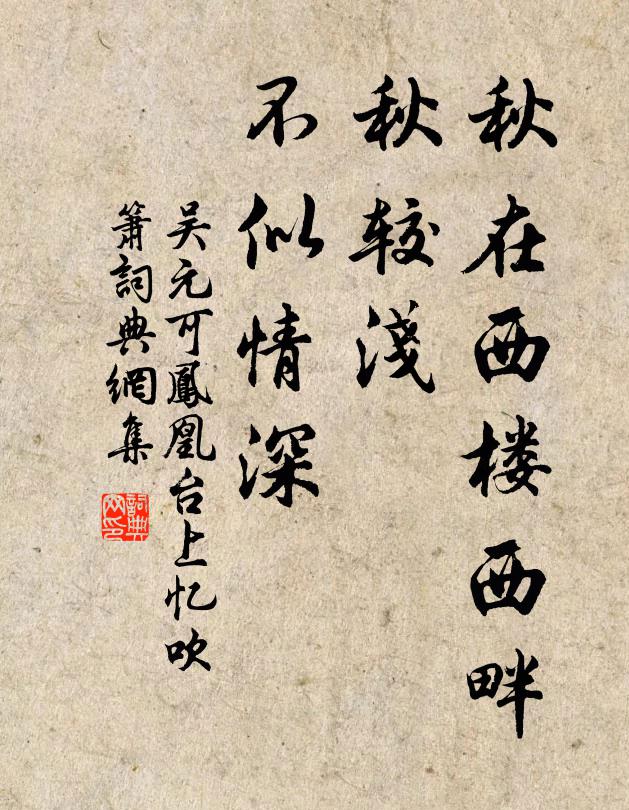 秋在西楼西畔
秋较淺
不似情深
吴元可鳳凰台上忆吹
箫詞典網集
詞典
网印